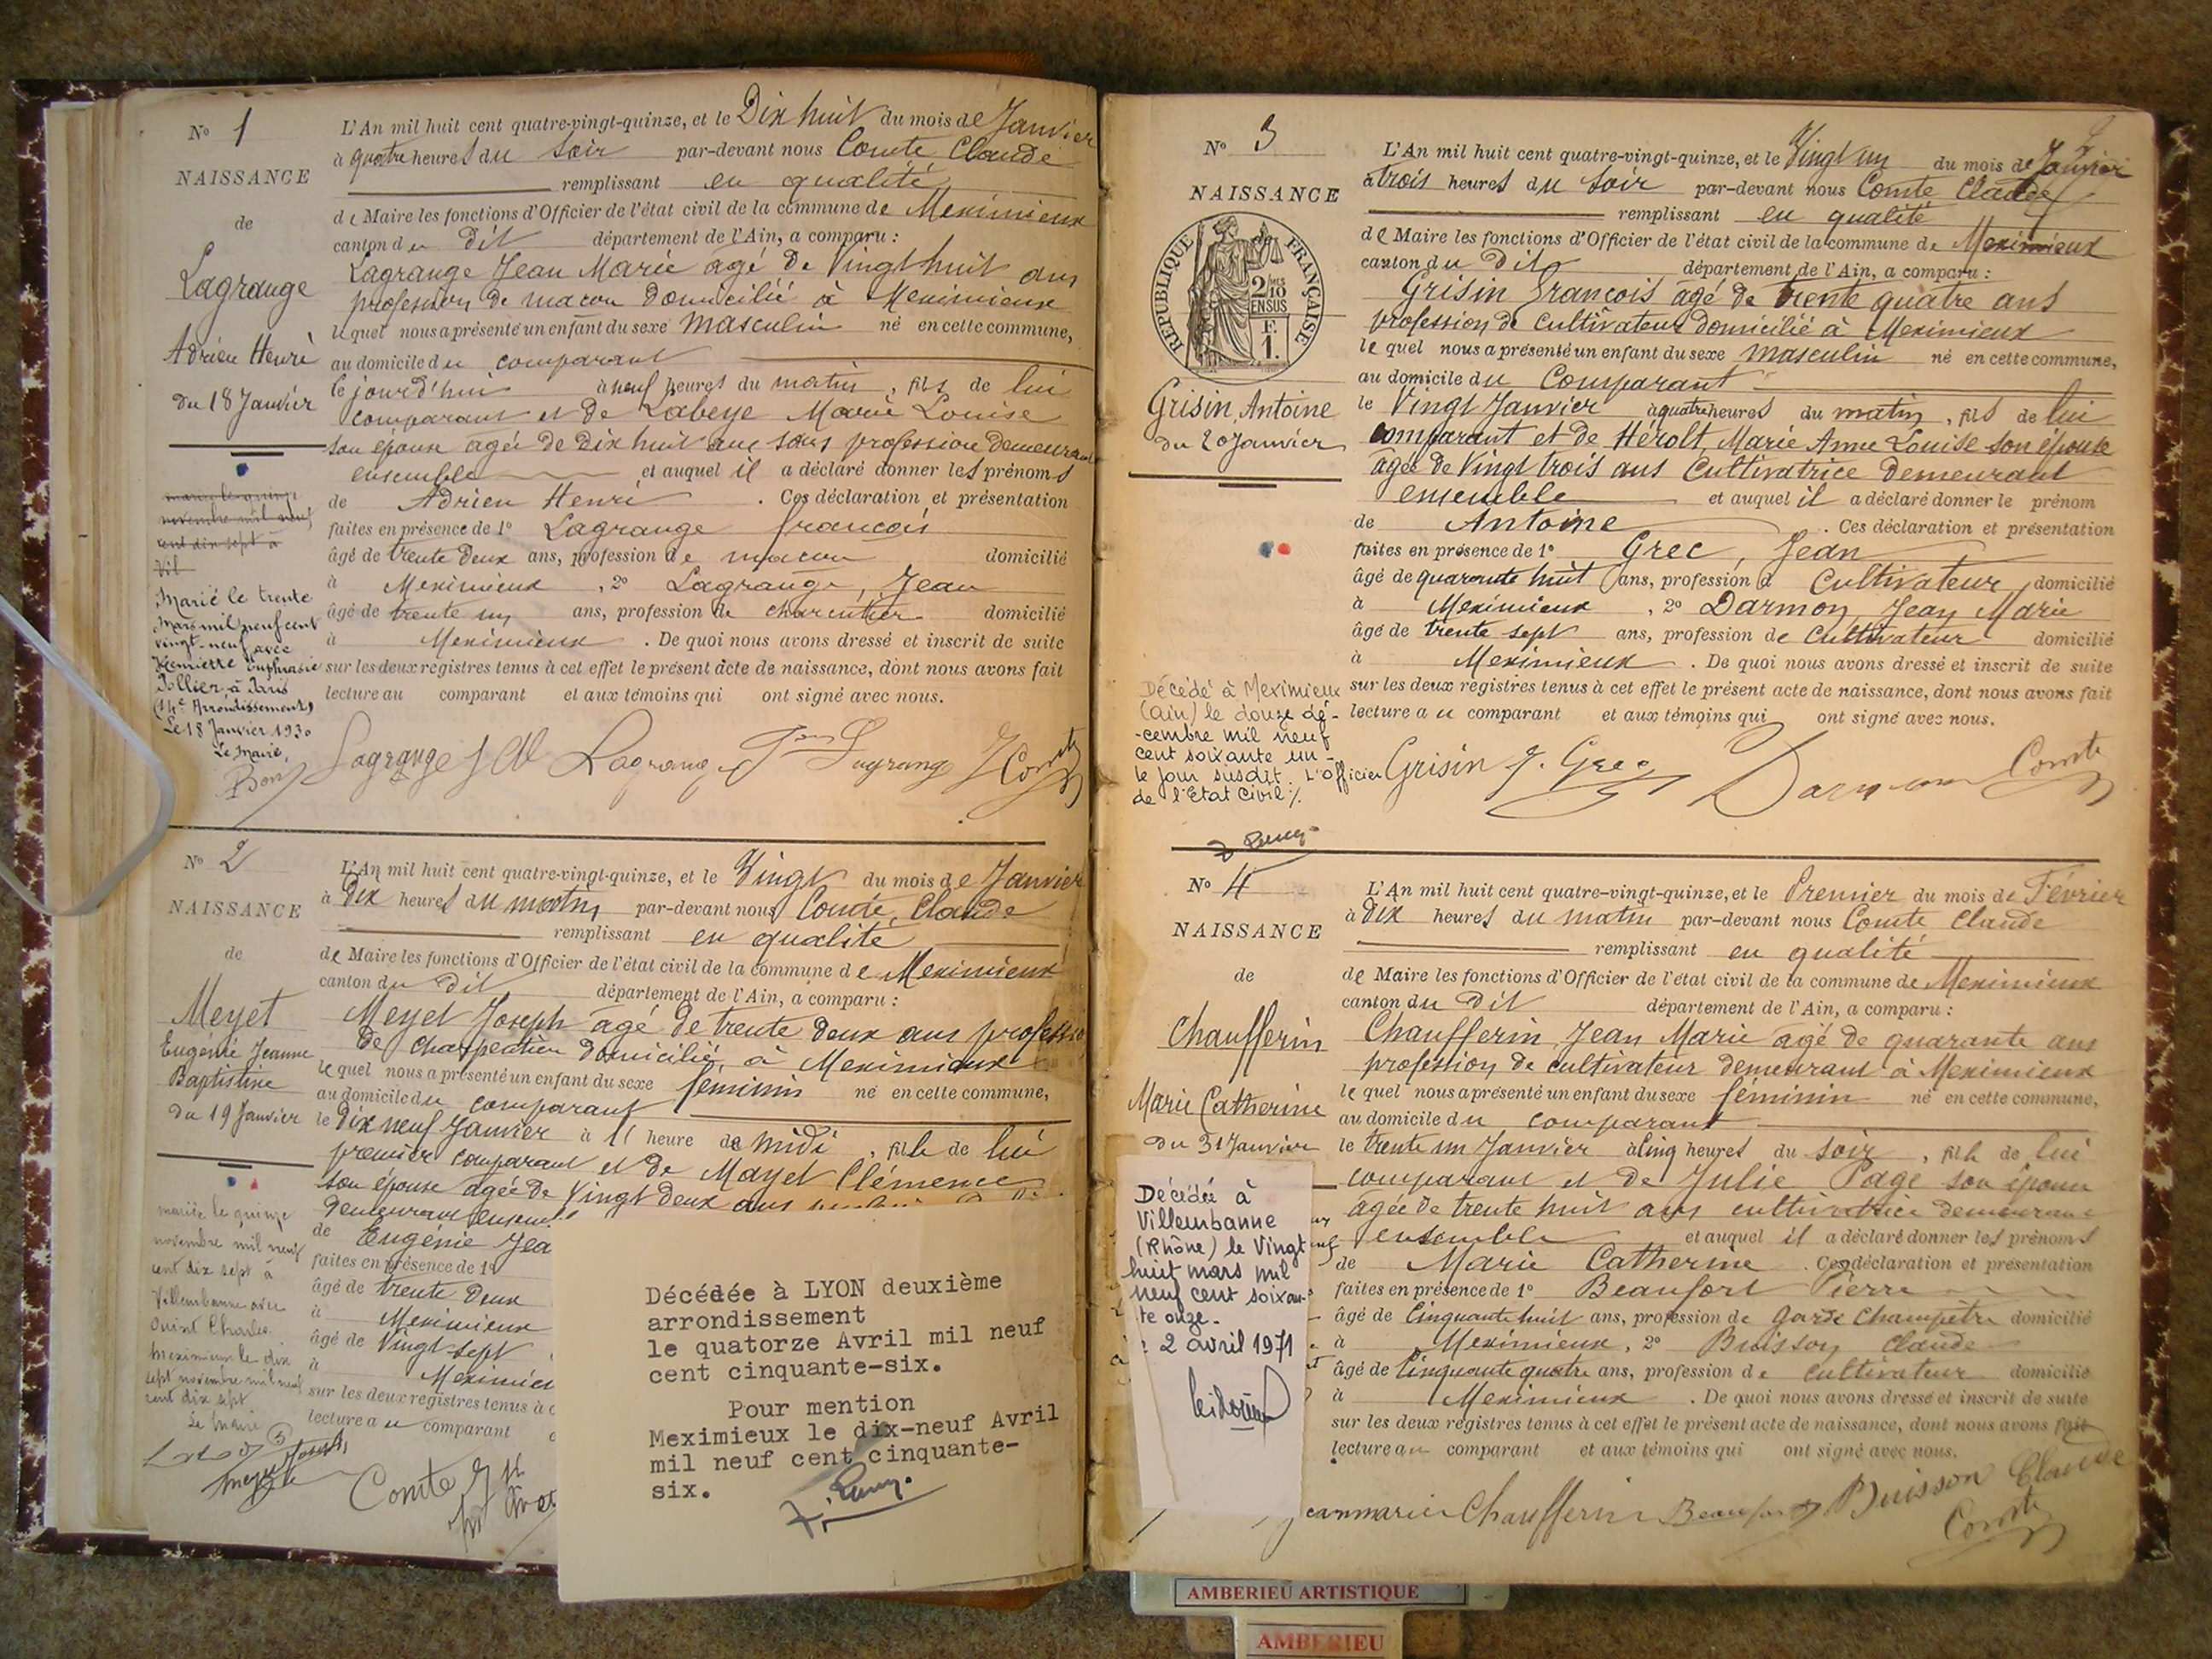 N° 1
NAISSANCE
de
Lagrange
Adrien Henri
du 18 Janvier
marié le quinze
novembre mil neuf
cent dix sept à
Vil
Marié le trente
Mars mil neuf cent
vingt-neuf avec
Henriette Euphrasie
à Paris
(14e Arrondissement)
Le 18 Janvier 1930
Le Maire,
L'An mil huit cent quatre-vingt-quinze, et le Dix huit du mois de Janvier
à quatre heures du soir par-devant nous Comte Claude
remplissant en qualité
de Maire les fonctions d'Officier de l'état civil de la commune de Meximieux
canton du dit département de l'Ain, a comparu :
Lagrange Jean Marie agé de Vingt huit ans
profession de macon domicilié à Meximieux
lequel nous a présenté un enfant du sexe masculin né en cette commune,
au domicile du comparant
le jourd'hui à neuf heures du matin, fils de lui
comparant et de Labeye Marie Louise
son épouse agée de Dix huit ans sans profession demeurant
ensemble et auquel il a déclaré donner les prénoms
de Adrien Henri . Ces déclaration et présentation
faites en présence de 1° Lagrange francois
âgé de trente deux ans, profession de macon domicilié
à Meximieux , 2° Lagrange, Jean
âgé de trente un ans, profession de charcutier domicilié
à Meximieux . De quoi nous avons dressé et inscrit de suite
sur les deux registres tenus à cet effet le présent acte de naissance, dont nous avons fait
lecture au comparant et aux témoins qui ont signé avec nous.
Lagrange J M Lagrange Jean Lagrange Comte
N° 2
NAISSANCE
de
Meyet
Eugénie Jeanne
Baptistine
du 19 Janvier
mariée le quinze
novembre mil neuf
cent dix sept à
Villeurbanne avec
Charles
Meximieux le dix
sept novembre mil neuf
cent dix sept
Le Maire
L'An mil huit cent quatre-vingt-quinze, et le Vingt du mois de Janvier
à Dix heures du matin par-devant nous Comte, Claude
remplissant en qualité
de Maire les fonctions d'Officier de l'état civil de la commune de Meximieux
canton du dit département de l'Ain, a comparu :
Meyet Joseph agé de trente deux ans professio
de charpentier domicilié à Meximieux
lequel nous a présenté un enfant du sexe féminin né en cette commune,
au domicile du comparant
le Dix neuf Janvier à 11 heure de midi , fille de lui
premier comparant et de Mayet Clémence
son épouse agée de Vingt deux ans
demeurant ensemble
de Eugénie Jea
faites en présence de 1°
âgé de trente deux
à Meximieux
âgé de Vingt-sept
à Meximieu
sur les deux registres tenus à c
lecture au comparant
Comte
Décédée à LYON deuxième
arrondissement
le quatorze Avril mil neuf
cent cinquante-six.
Pour mention
Meximieux le dix-neuf Avril
mil neuf cent cinquante-
six.
N° 3
NAISSANCE
REPUBLIQUE FRANÇAISE
2/10 EN SUS
F. 1.
Grisin Antoine
du 20 Janvier
Décédé à Meximieux
(Ain) le douze dé-
-cembre mil neuf
cent soixante un -
le jour susdit. L'Officier
de l'Etat Civil ./.
L'An mil huit cent quatre-vingt-quinze, et le Vingt un du mois de Janvier
à trois heures du soir par-devant nous Comte Claude
remplissant en qualité
de Maire les fonctions d'Officier de l'état civil de la commune de Meximieux
canton du dit département de l'Ain, a comparu :
Grisin Francois agé de trente quatre ans
profession de cultivateur domicilié à Meximieux
le quel nous a présenté un enfant du sexe masculin né en cette commune,
au domicile du comparant
le Vingt Janvier à quatre heures du matin, fils de lui
comparant et de Hérolt, Marie Anne Louise son épouse
agée de Vingt trois ans Cultivatrice demeurant
ensemble et auquel il a déclaré donner le prénom
de Antoine . Ces déclaration et présentation
faites en présence de 1° Grec, Jean
âgé de quarante huit ans, profession d cultivateur domicilié
à Meximieux , 2° Darmon, Jean Marie
âgé de trente sept ans, profession de cultivateur domicilié
à Meximieux . De quoi nous avons dressé et inscrit de suite
sur les deux registres tenus à cet effet le présent acte de naissance, dont nous avons fait
lecture au comparant et aux témoins qui ont signé avec nous.
Grisin J. Grec Darmon Comte
N° 4
NAISSANCE
de
Chaufferin
Marie Catherine
du 31 Janvier
Décédée à
Villeurbanne
(Rhône) le Vingt
huit mars mil
neuf cent soixan-
te onze.
2 avril 1971
L'An mil huit cent quatre-vingt-quinze, et le Premier du mois de Février
à Dix heures du matin par-devant nous Comte Claude
remplissant en qualité
de Maire les fonctions d'Officier de l'état civil de la commune de Meximieux
canton du dit département de l'Ain, a comparu :
Chaufferin Jean Marie agé de quarante ans
profession de cultivateur demeurant à Meximieux
le quel nous a présenté un enfant du sexe féminin né en cette commune,
au domicile du comparant
le trente un Janvier à Cinq heures du soir, fille de lui
comparant et de Julie Page son épouse
agée de trente huit ans cultivatrice demeurant
ensemble et auquel il a déclaré donner les prénoms
de Marie Catherine . Ces déclaration et présentation
faites en présence de 1° Beaufort Pierre
âgé de Cinquante huit ans, profession de Garde Champetre domicilié
à Meximieux, 2° Buisson Claude
âgé de Cinquante quatre ans, profession de cultivateur domicilié
à Meximieux . De quoi nous avons dressé et inscrit de suite
sur les deux registres tenus à cet effet le présent acte de naissance, dont nous avons fait
lecture au comparant et aux témoins qui ont signé avec nous.
eanmarie Chaufferin Beaufort Buisson Claude
Comte
AMBERIEU ARTISTIQUE
AMBERIEU